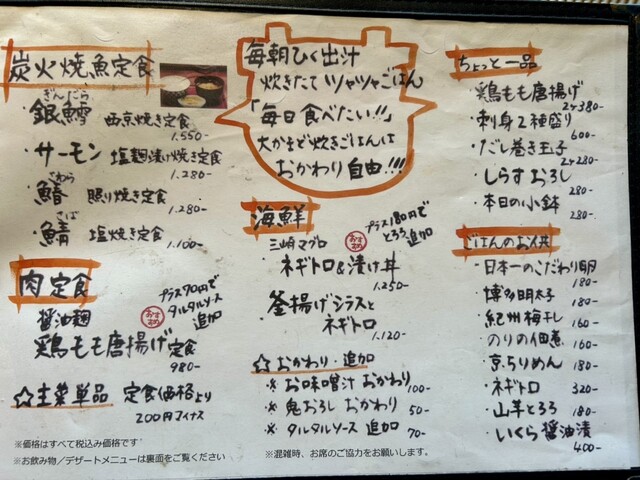 炭火焼魚定食
ぎんだら
銀鱈 西京焼き定食
1.550-
サーモン 塩麹漬け焼き定食
1.280-
さわら
鰆 照り焼き定食
1.280-
さば
鯖 塩焼き定食
1.100-
肉定食
プラス70円で
タルタルソース
追加
おすすめ
醤油麹
鶏もも唐揚げ定食
980-
☆主菜単品 定食価格より
200円マイナス
※価格はすべて税込み価格です
※お飲み物/デザートメニューは裏面をご覧ください
毎朝ひく出汁
炊きたてツヤツヤごはん
「毎日食べたい!!」
大かまど炊きごはんは
おかわり自由!!!
海鮮
プラス180円で
とろろ追加
おすすめ
三崎マグロ
ネギトロ&漬け丼
1.250-
釜揚げシラスと
ネギトロ
1.120-
☆おかわり・追加
* お味噌汁 おかわり
100-
* 鬼おろし おかわり
50-
* タルタルソース 追加
70-
※混雑時、お席のご協力をお願いします。
ちょっと一品
・鶏もも唐揚げ
2ヶ380-
・刺身2種盛り
600-
・だし巻き玉子
2ヶ280-
・しらすおろし
280-
・本日の小鉢
280-
ごはんのお供
・日本一のこだわり卵
180-
・博多明太子
180-
・紀州梅干し
160-
・のりの佃煮
160-
・京ちりめん
180-
・ネギトロ
320-
・山芋とろろ
180-
・いくら醤油漬
400-